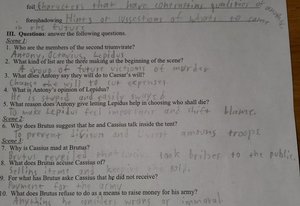 foil Characters that have contrasting qualities of
foreshadowing Hints or of whats to come
in the future
III. Questions: answer the following questions.
Scene 1:
1. Who are the members of the second triumvirate?
Antony, Octavius, Lepidus
2. What kind of list are the three making at the beginning of the scene?
A group of future victims of murder
3. What does Antony say they will do to Caesar's will?
Change the will to cut expenses
4. What is Antony's opinion of Lepidus?
He is stupid and easily swayed
5. What reason does Antony give letting Lepidus help in choosing who shall die?
To make Lepidus feel important and shift blame.
Scene 2:
6. Why does Brutus suggest that he and Cassius talk inside the tent?
To prevent division and among troops
Scene 3:
7. Why is Cassius mad at Brutus?
Brutus revealed that took bribes to the public.
8. What does Brutus accuse Cassius of?
Selling items and gold.
9. For what has Brutus asked Cassius that he did not receive?
Payment for the army
10. What does Brutus refuse to do as a means to raise money for his army?
Anything he considers wrong or immoral